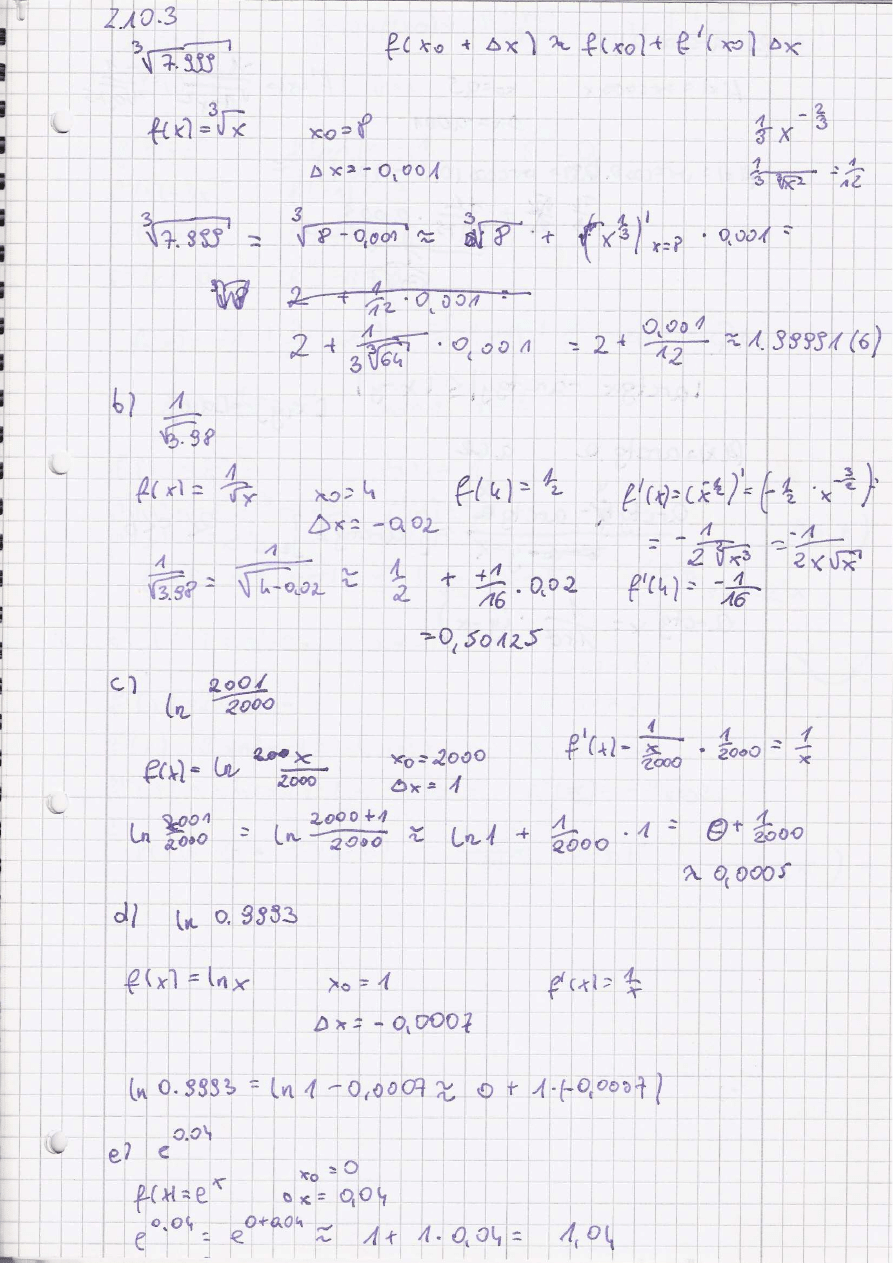 Z.10.3
∛7.999    f(x₀ + Δx) ≈ f(x₀) + f'(x₀) Δx
f(x) = ∛x    x₀ = 8    1/3 x^(-2/3)
Δx = -0,001    1/3 1/∛x² = 1/12
∛7.999 = ∛(8 - 0,001) ≈ ∛8 + (x^(1/3))'ₓ₌₈ · 0,001 =
2 + 1/12 · 0,001 =
2 + 1/(3∛64) · 0,001 = 2 + 0,001/12 ≈ 1.99991(6)
b) 1/√3.98
f(x) = 1/√x    x₀ = 4    f(4) = 1/2    f'(x) = (x^(-1/2))' = (-1/2 · x^(-3/2)) =
Δx = -0,02    = -1/(2 ²√x³) = -1/(2x√x)
1/√3.98 = 1/√(4-0,02) ≈ 1/2 + +1/16 · 0,02    f'(4) = -1/16
= 0,50125
c) ln 2001/2000
f(x) = ln x/2000    x₀ = 2000    f'(x) = 1/(x/2000) · 1/2000 = 1/x
Δx = 1
ln 2001/2000 = ln (2000+1)/2000 ≈ ln 1 + 1/2000 · 1 = 0 + 1/2000
≈ 0,0005
d) ln 0.9993
f(x) = ln x    x₀ = 1    f'(x) = 1/x
Δx = -0,0007
ln 0.9993 = ln 1 - 0,0007 ≈ 0 + 1·(-0,0007)
e) e^0.04
x₀ = 0
f(x) = e^x    Δx = 0,04
e^0.04 = e^(0+0,04) ≈ 1 + 1 · 0,04 = 1,04